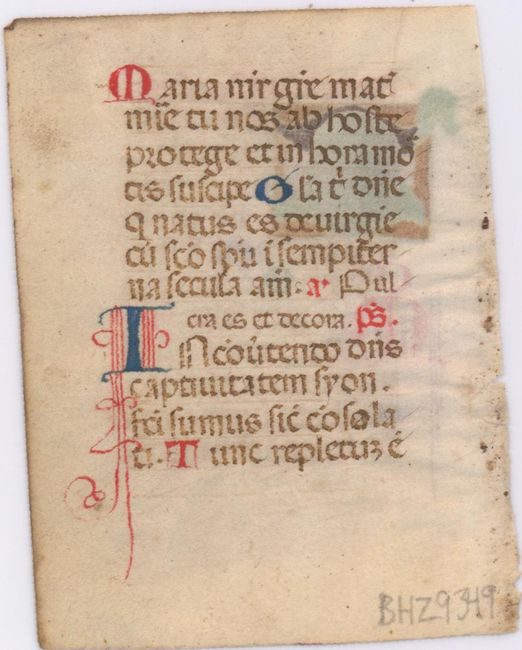 Maria uirgie mat͛
mie tu nos ab hoste
protege et in hora mo
tis suscipe Gla t͛ dn̄e
q natus es deuirgie
cū sc̄o sp̄u i sempiter
na secula am̄. a Pul
cra es et decora. ps̄.
IN cōuertendo dn̄s
captiuitatem syon.
fc̄i sumus sic̄ cōsola
ti. Tunc repletuꝫ ē
BHZ9349